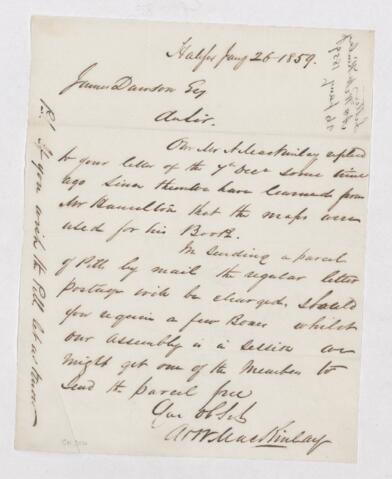 Halifax Jany 26 1859.
James Dawson Esq
Dr Sir.
Our Mr A MacKinlay replied
to your letter of the 7th Decr some time
ago Since then we have learned from
Mr Hamilton that the maps were
used for his Book.
In sending a parcel
of Pills by mail the regular letter
Postage will be charged, should
you require a few Boxes whilst
our assembly is in session we
might get one of the Members to
send the parcel free
Your Ob Svt
A & W MacKinlay
P.S. If you wish the Pills let us know
26 Jany 1859